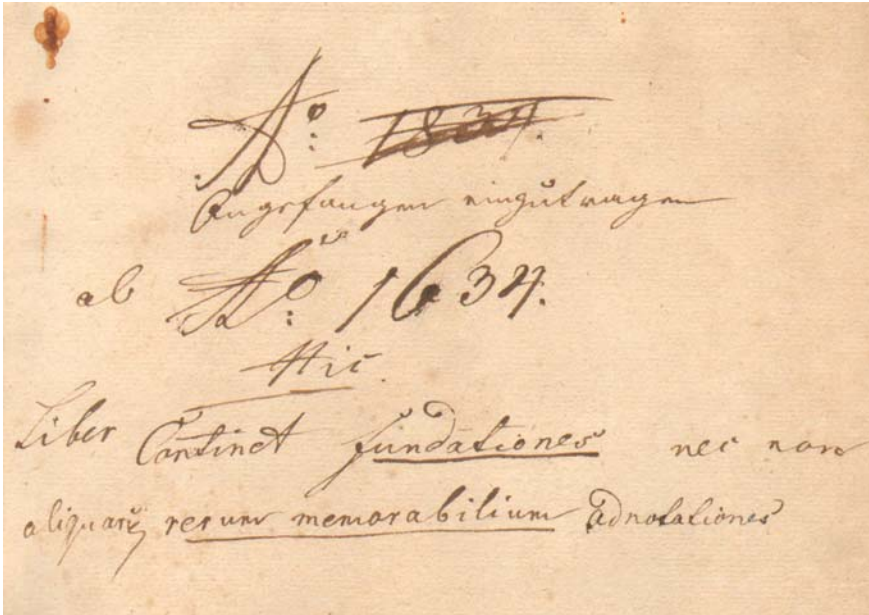 Aō: 1834.
Angefangen einzutragen
ab Aō: 1634.
Hic
Liber Continet fundationes nec non
aliquarū rerum memorabilium adnotationes